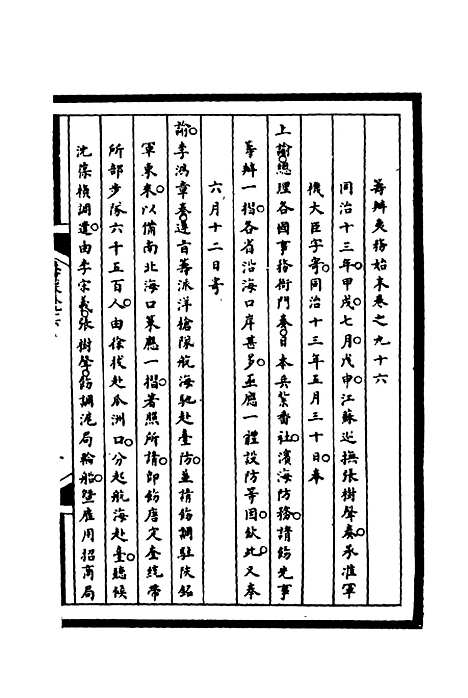 籌辦夷務始末卷之九十六
同治十三年甲戌七月戊申江蘇巡撫張樹聲奏承准軍
機大臣字寄同治十三年五月三十日奉
上諭總理各國事務衙門奏日本兵紮番社濱海防務請飭先事
籌辦一摺各省沿海口岸甚多亟應一體設防等因欽此又奉
六月十二日寄
諭李鴻章奏遵旨籌派洋槍隊航海馳赴臺防並請飭調駐陝銘
軍東來以備南北海口策應一摺著照所請即飭唐定奎統帶
所部步隊六千五百人由徐拔赴瓜洲口分起航海赴臺聽候
沈葆楨調遣由李宗羲張樹聲飭調滬局輪船暨雇用招商局